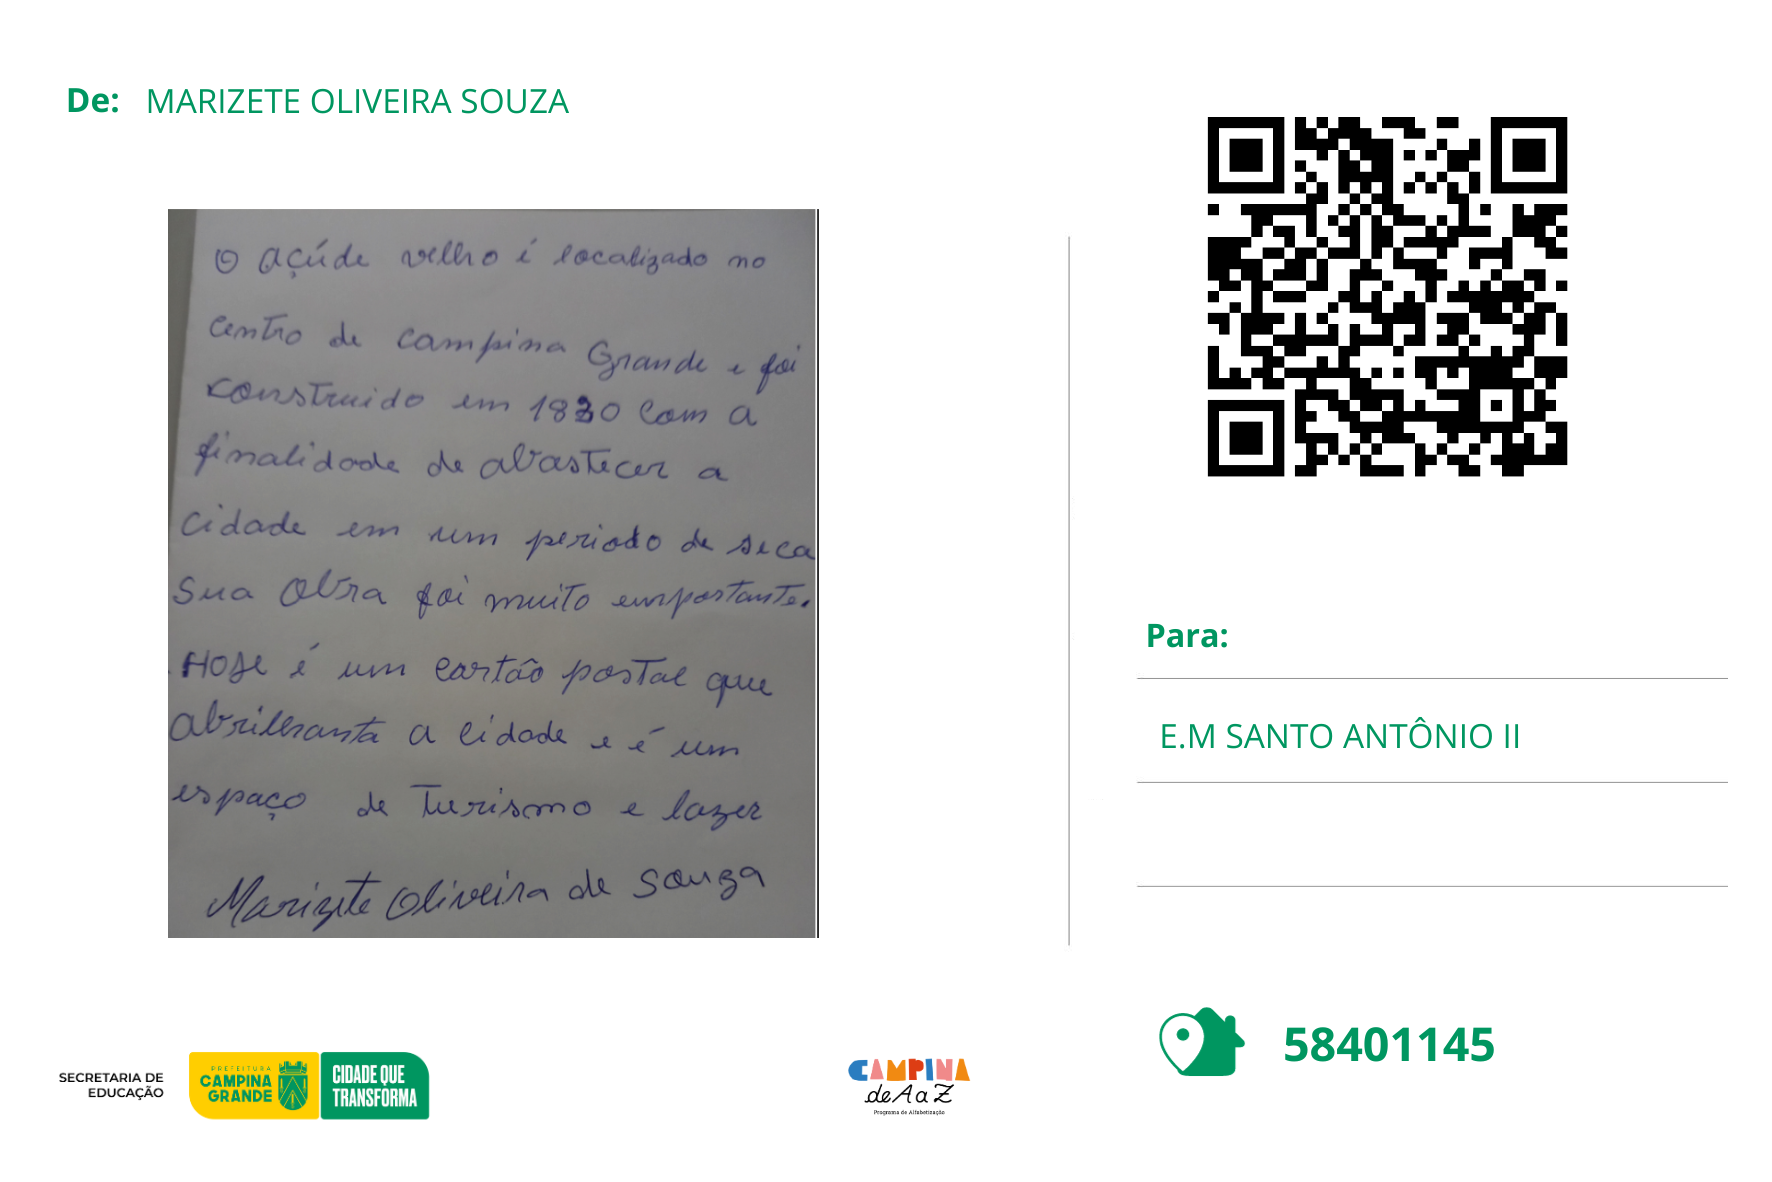 De: MARIZETE OLIVEIRA SOUZA
O açúde velho é localizado no
centro de campina Grande e foi
construido em 1830 com a
finalidade de abastecer a
cidade em um periodo de seca
sua obra foi muito emportante.
Hoje é um cartão postal que
abrilhanta a cidade e é um
espaço de Turismo e lazer
Marizete Oliveira de Souza
Para:
E.M SANTO ANTÔNIO II
58401145
SECRETARIA DE
EDUCAÇÃO
PREFEITURA
CAMPINA
GRANDE
CIDADE QUE
TRANSFORMA
CAMPINA
de A a Z
Programa de Alfabetização